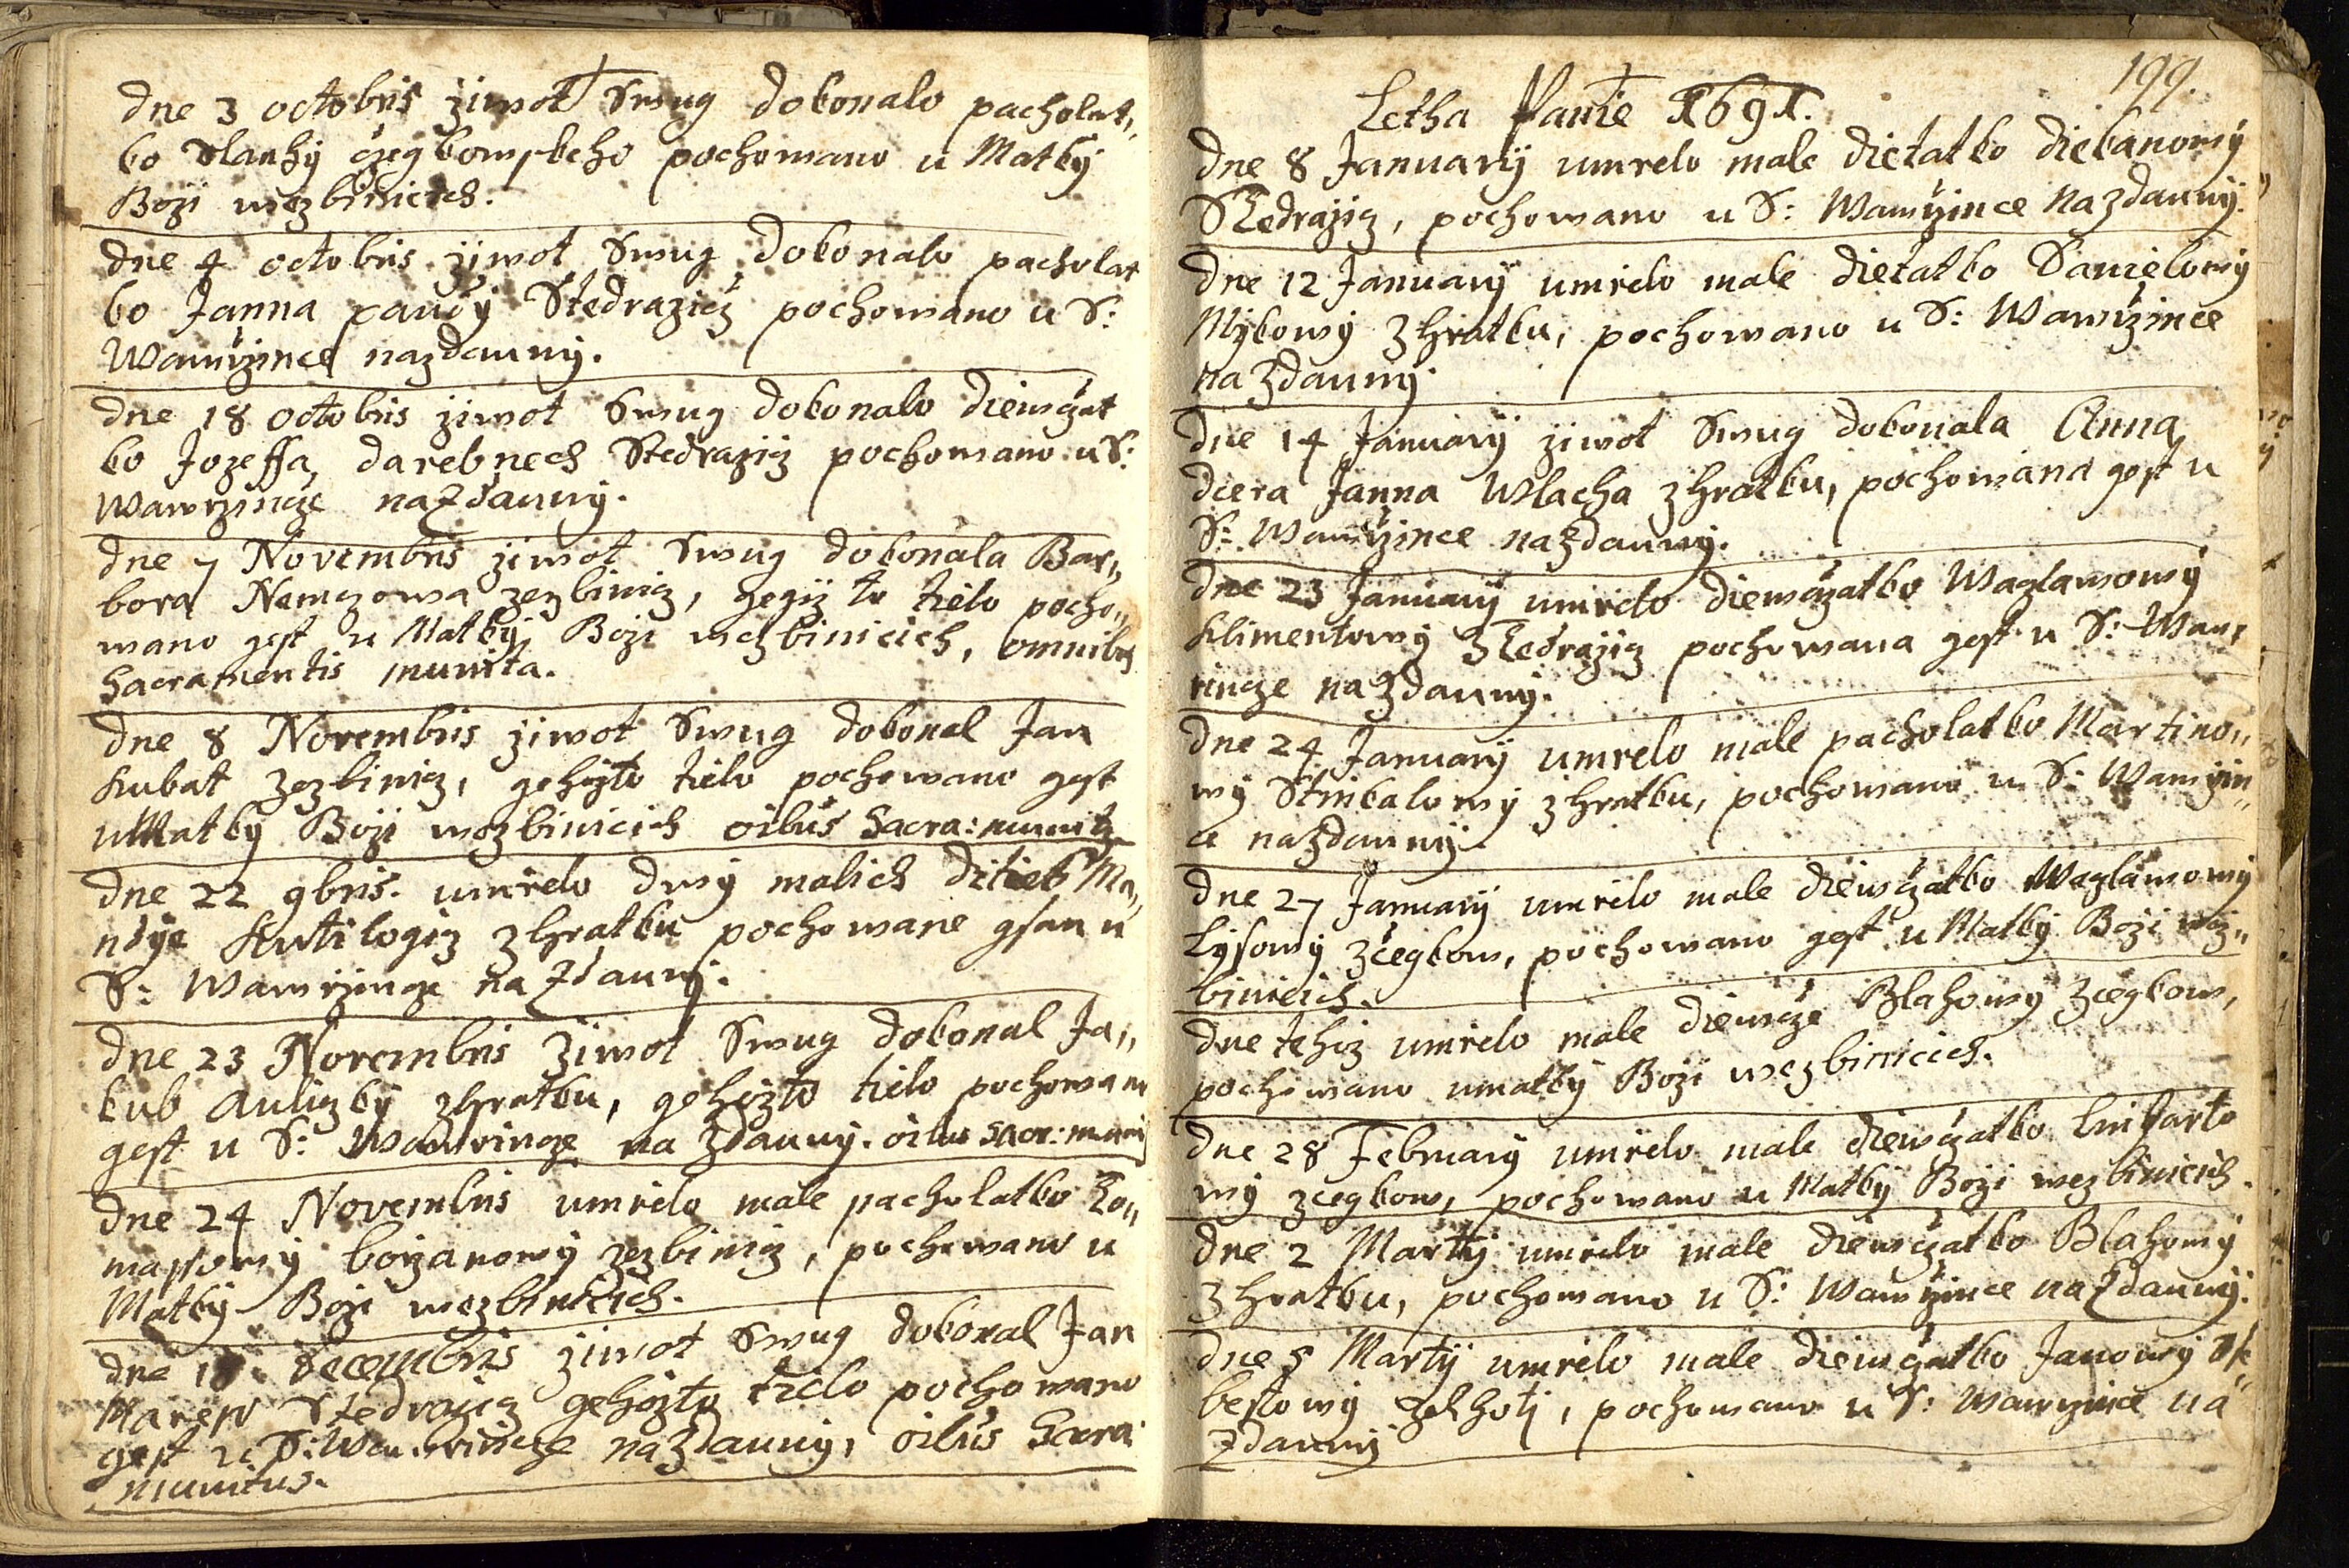 dne 3 octobris ziwot Swug dokonalo pacholat„
ko Blanhy czegkowskeho pochowano u Matky
Bozi wezbinicich.
dne 4 octobris ziwot Swug dokonalo pacholat
ko Janna pauсy Stedrazicz pochowano u S:
Wawrzince nazdauny.
dne 18 octobris ziwot Swug dokonalo diewczat
ko Jozeffa darebnech Stedrazicz pochowano u S:
Wawrzincze naZdauny.
dne 7 Novembris ziwot Swug dokonala Bar„
bora Nemczowa zezbinicz, gegiz to tielo pocho„
wano gest u Matky Bozi wezbinicich, omnibus
Sacramentis munita.
dne 8 Novembris ziwot Swug dokonal Jan
Kubat Zezbinicz, gehozto tielo pochowano gest
u Matky Bozi wezbinicich oibus Sacra: munitus
dne 22 9bris. umrelo dwy malich ditiek Ma„
ndye Kutilogicz zhratku pochowane gsau u
S: Wawrzincze na Zdauny.
dne 23 Novembris Ziwot Swug dokonal Ja„
kub Auliczky zhratku, gehozto tielo pochowano
gest u S: Wawrincze na Zdauny. oibus Sacr: muni
dne 24 Novembris umrelo male pacholatko To„
massowy bozanowy zezbinicz, pochowano u
Matky Bozi wezbinicich.
dne 10 Decembris ziwot Swug dokonal Jan
Maress Stedrazicz gehozto tielo pochowano
gest u S: Wawrincze naZdauny, oibus Sacra
munitus.
199.
Letha Panie 1691.
dne 8 January umrelo male dietatko diekanowy
STedrazicz, pochowano u S: Wawrzince Nazdauny.
dne 12 January umrelo male dietatko Danielowy
Mykowy Zhratku, pochowano u S: Wawrzince
na Zdauny.
dne 14 January ziwot Swug dokonala Anna
dcera Janna Wlacha zhratku, pochowana gest u
S: Wawrzince nazdauny.
dne 23 January umrelo diewczatko Waczlawowy
Klimentowy STedrazicz pochowana gest u S: Waw„
rincze naZdauny.
dne 24 January umrelo male pacholatko Martino„
wy Strnkalowy zhratku, pochowano u S: Wawrzin„
ce nazdauny
dne 27 January umrelo male diewczatko Waczlawowy
Lysowy zcegkow, pochowano gest u Matky Bozi wez„
binicich.
dne tehoz umrelo male diewcze Blahowy zcegkow,
pochowano umatky Bozi wezbinicich.
dne 28 February umrelo male diewczatko Linharto
wy zcegkow, pochowano u Matky Bozi wezbinicich.
dne 2 Marty umrelo male diewczatko Blahowy
Zhratku, pochowano u S: Wawrzince naZdauny.
dne 5 Marty umrelo male diewczatko Janowy
bestowy Zelhoti, pochowano u S: Wawrzince na
Zdauny